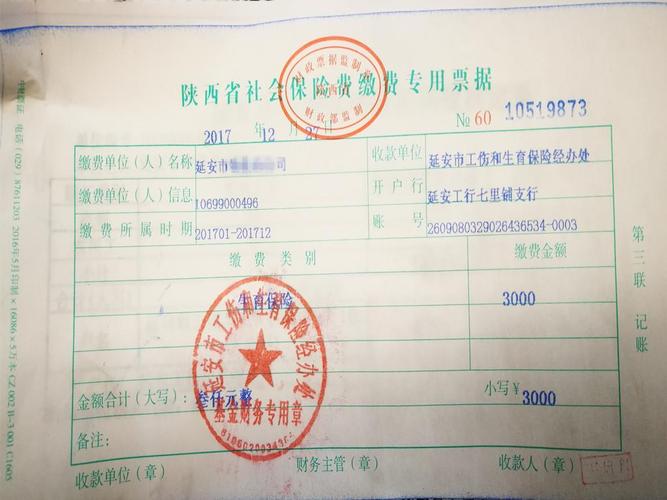 陕西省社会保险费缴费专用票据
财政部监制
2017 年 12 月 27 日
№ 60 10519873
缴费单位（人）名称 延安市 司 收款单位 延安市工伤和生育保险经办处
缴费单位（人）信息 10699000496 开户行 延安工行七里铺支行
缴费所属时期 201701-201712 账号 2609080329026436534-0003
缴费类别 缴费金额
生育保险 3000
延安市工伤和生育保险经办处
基金财务专用章
金额合计（大写）： 叁仟元整 小写￥ 3000
备注：
收款单位（章） 财务主管（章） 收款人（章）
第三联 记账
电话（029）87611203 2016年5月印制